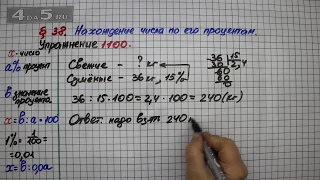 § 38. Нахождение числа по его процентам.
Упражнение 1100.
x - число
a% процент
b значение процента
x = b : a · 100
1% = 1/100 = 0,01
x = b : 0,0a
Свежие - ? кг
Сушёные - 36 кг, 15%
36 15
30 2,4
60
60
0
36 : 15 · 100 = 2,4 · 100 = 240 (кг)
Ответ: надо взять 240